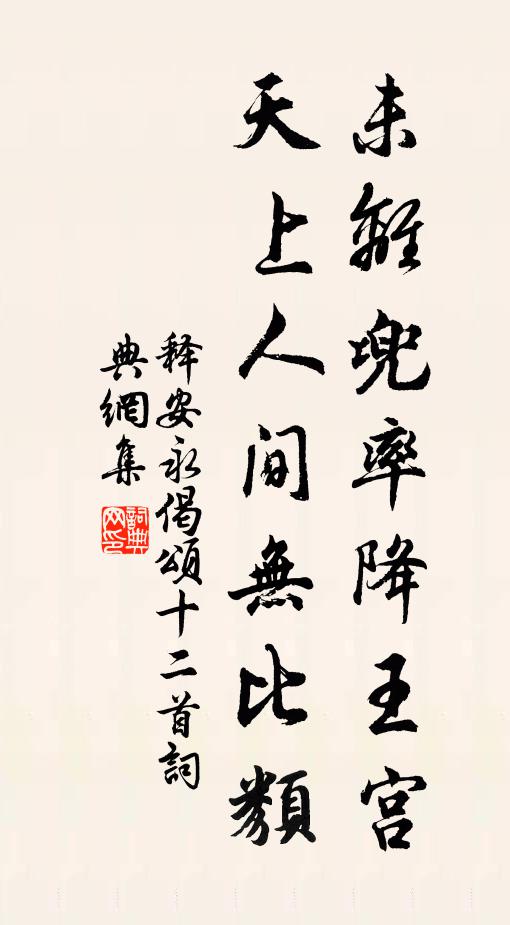 未離兜率降王宫
天上人间無比類
释安永偈頌十二首詞
典網集
詞典網印